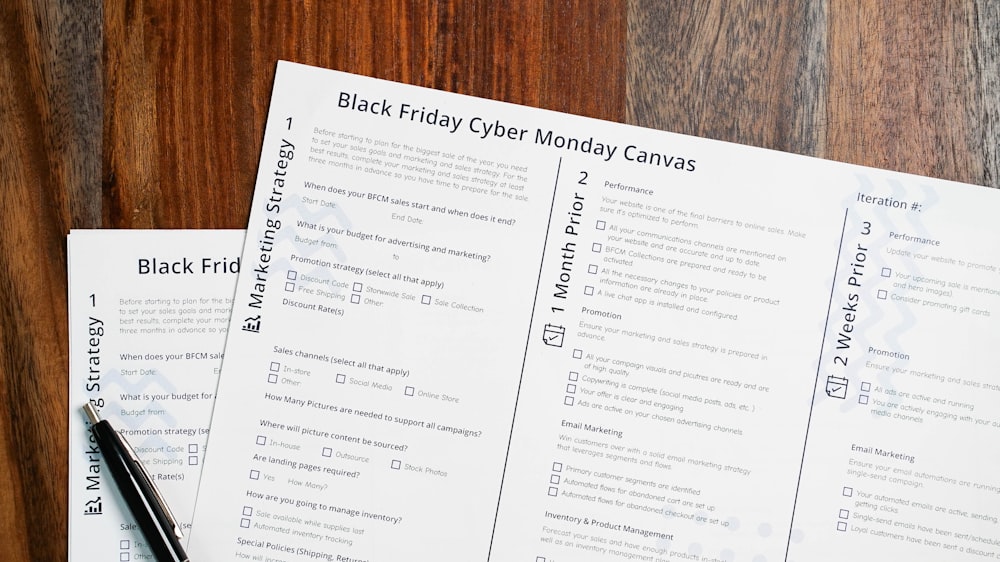 Black Friday Cyber Monday Canvas
Iteration #:
Marketing Strategy 1
Before starting to plan for the biggest sale of the year, you need
to set your sales goals and marketing and sales strategy. For the
best results, complete your marketing and sales strategy at least
three months in advance so you have time to prepare for the sale.
When does your BFCM sale start and when does it end?
Start Date: End Date:
What is your budget for advertising and marketing?
Budget from: to
Promotion strategy (select all that apply)
Discount Code Storewide Sale Sale Collection
Free Shipping Other
Discount Rate(s)
Sales channels (select all that apply)
In-store Social Media Online Store
Other
How Many Pictures are needed to support all campaigns?
Where will picture content be sourced?
In-house Outsource Stock Photos
Are landing pages required?
Yes How Many?
How are you going to manage inventory?
Sale available while supplies last
Automated inventory tracking
Special Policies (Shipping, Returns
How will
1 Month Prior 2
Performance
Your website is one of the final barriers to online sales. Make
sure it's optimized to perform.
All your communications channels are mentioned on
your website and are accurate and up to date
BFCM Collections are prepared and ready to be
activated
All the necessary changes to your policies or product
information are already in place.
A live chat app is installed and configured
Promotion
Ensure your marketing and sales strategy is prepared in
advance.
All your campaign visuals and picutres are ready and are
of high quality
Copywriting is complete (social media posts, ads, etc.)
Your offer is clear and engaging
Ads are active on your chosen advertising channels
Email Marketing
Win customers over with a solid email marketing strategy
that leverages segments and flows.
Primary customer segments are identified
Automated flows for abandoned cart are set up
Automated flows for abandoned checkout are set up
Inventory & Product Management
Forecast your sales and have enough products in-sto
well as an inventory management
2 Weeks Prior 3
Performance
Update your website to promote
Your upcoming sale is mentione
and hero images).
Consider promoting gift cards
Promotion
Ensure your marketing and sales strate
All ads are active and running
You are actively engaging with your
media channels
Email Marketing
Ensure your email automations are running
single-send campaign.
Your automated emails are active, sending
getting clicks
Single-send emails have been sent/schedule
Loyal customers have been sent a discount c
Black Frid
Marketing Strategy 1
Before starting to plan for the bi
to set your sales goals and mark
best results, complete your mark
three months in advance so you
When does your BFCM sale
Start Date: En
What is your budget for a
Budget from:
Promotion strategy (se
Discount Code
Free Shipping
Rate(s)
Sales
In-sto
Other